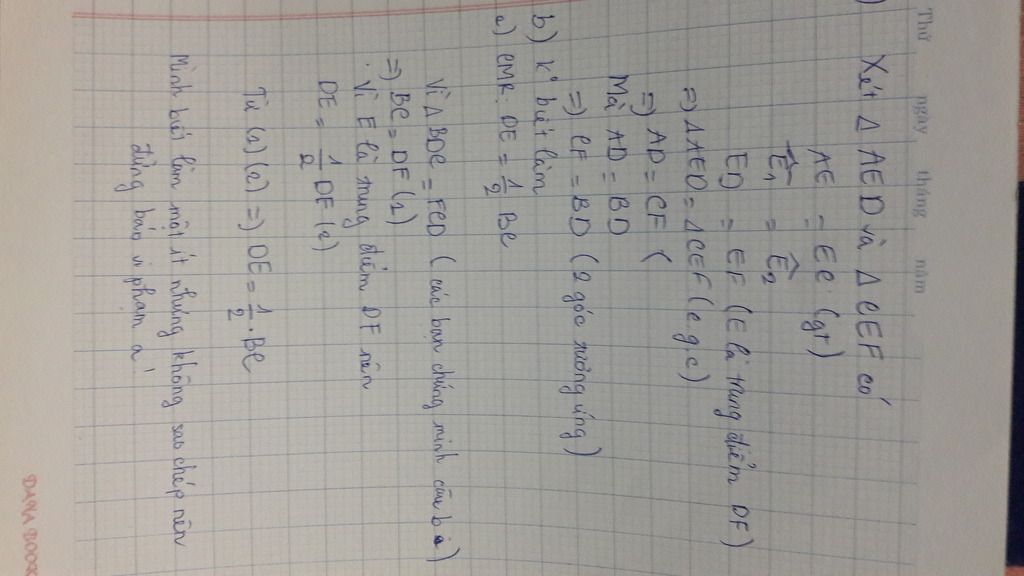 Thứ ngày tháng năm
)
Xét Δ AED và Δ CEF có
AE = EC (gt)
Ê1 = Ê2
ED = EF (E là trung điểm DF)
=) Δ AED = Δ CEF (c.g.c)
=) AD = CF (
Mà AD = BD
=) CF = BD (2 góc tương ứng)
b) K° biết làm
c) CMR: DE = 1/2 BC
Vì Δ BDC = FCD (các bạn chứng minh câu b ạ)
=) BC = DF (1)
. Vì E là trung điểm DF nên
DE = 1/2 DF (2)
Từ (1) (2) =) DE = 1/2 . BC
Mình biết làm một ít nhưng không sao chép nên
đừng báo vi phạm ạ